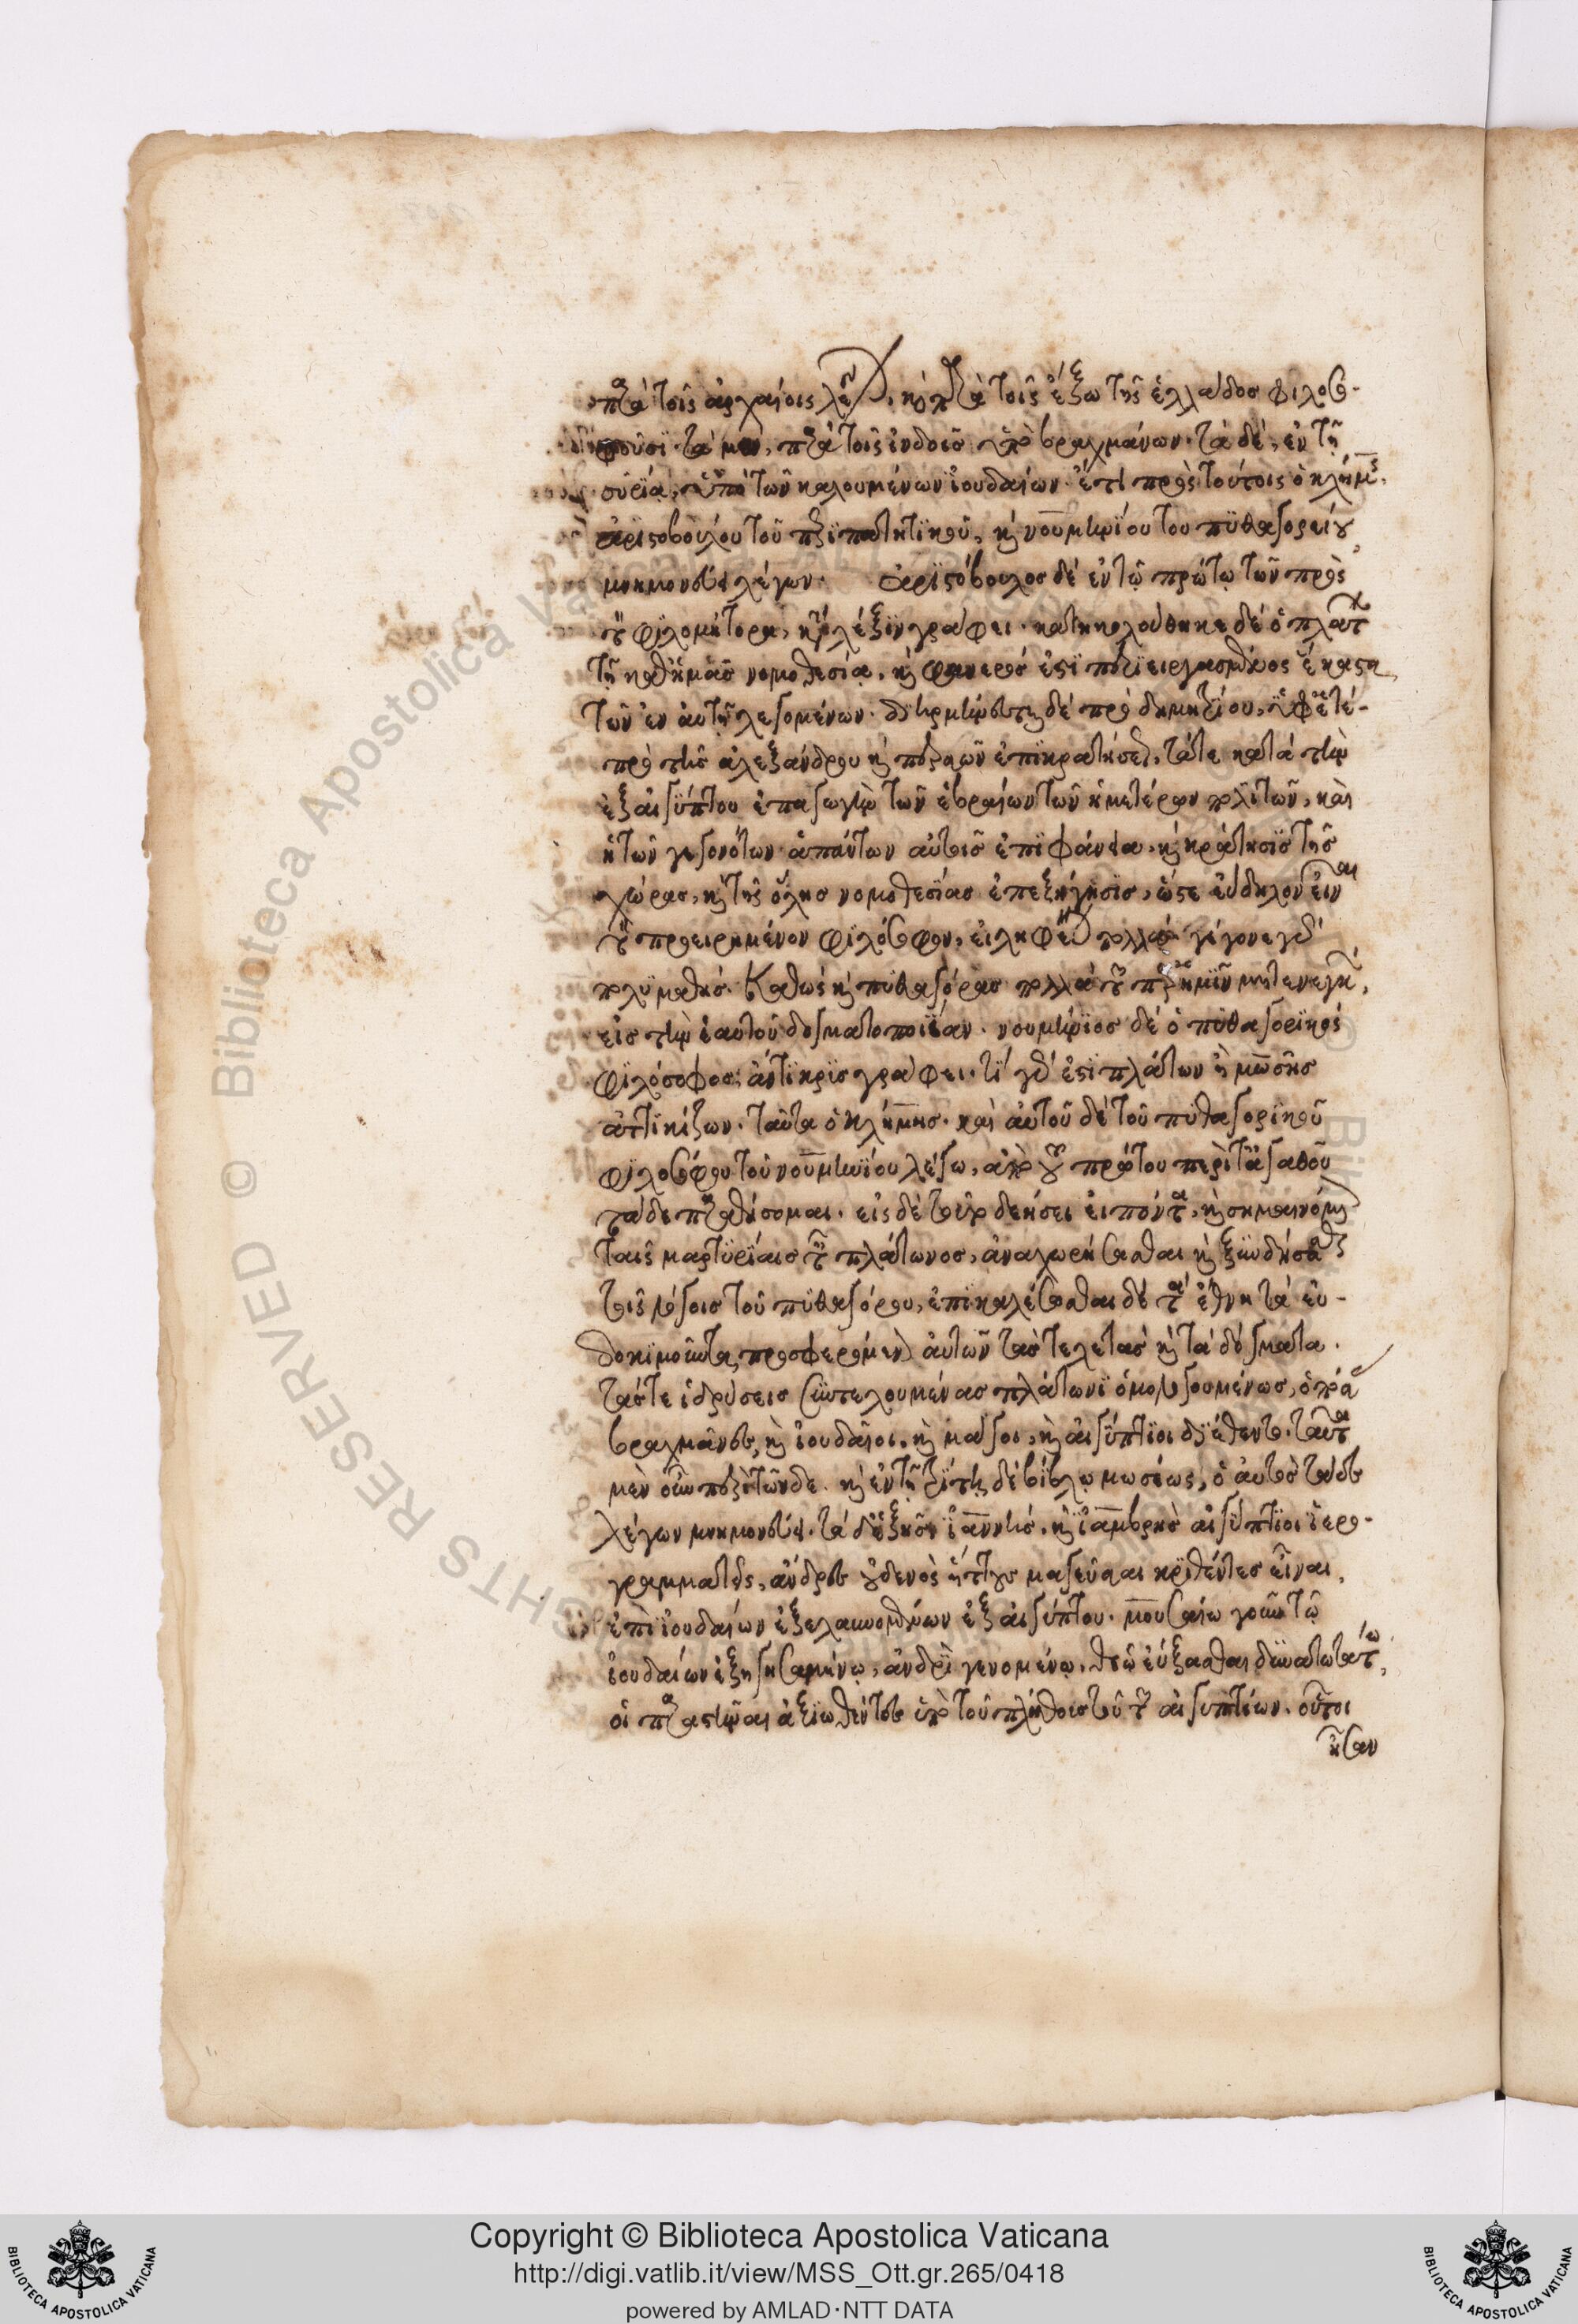 παρὰ τοῖς ἀρχαίοις λέγεται, καὶ παρὰ τοῖς ἔξω τῆς ἑλλάδος φιλοσο-
φοῦσι· τὰ μὲν, παρὰ τοῖς ἰνδοῖς ὑπὸ βραχμάνων· τὰ δὲ, ἐν τῇ
συρίᾳ, ὑπὸ τῶν καλουμένων ἰουδαίων· ἔτι πρὸς τούτοις ὁ κλήμης,
ἀριστοβούλου τοῦ περιπατητικοῦ, καὶ νουμηνίου του πυθαγορείου
μνημονεύει λέγων· ἀριστόβουλος δὲ ἐν τῷ πρώτῳ τῶν πρὸς
τὸν φιλομήτορα, κατὰ λέξιν γράφει· κατηκολούθηκε δὲ ὁ πλάτων
τῇ καθ' ἡμᾶς νομοθεσίᾳ, καὶ φανερός ἐστι περιειργασμένος ἕκαστα
τῶν ἐν αὐτῇ λεγομένων· διηρμήνευται δὲ πρὸ δημητρίου, ὑφ' ἑτέ-
πρὸ τῆς ἀλεξάνδρου καὶ περσῶν ἐπικρατήσεως, τά τε κατὰ τὴν
ἐξ αἰγύπτου ἐξαγωγὴν τῶν ἑβραίων τῶν ἡμετέρων πολιτῶν, καὶ
ἡ τῶν γεγονότων ἁπάντων αὐτοῖς ἐπιφάνεια, καὶ κράτησις τῆς
χώρας, καὶ τῆς ὅλης νομοθεσίας ἐπεξήγησις, ὥστε εὔδηλον εἶναι
τὸν προειρημένον φιλόσοφον, εἰληφέναι πολλά· γέγονε γὰρ
πολυμαθής· καθὼς καὶ πυθαγόρας πολλὰ τῶν παρ' ἡμῖν μετενεγκὼν,
εἰς τὴν ἑαυτοῦ δογματοποιΐαν· νουμήνιος δὲ ὁ πυθαγορικὸς
φιλόσοφος, ἄντικρις γράφει· τί γὰρ ἐστι πλάτων ἢ μωσῆς
ἀττικίζων· ταῦτα ὁ κλήμης· καὶ αὐτοῦ δὲ τοῦ πυθαγορικοῦ
φιλοσόφου τοῦ νουμηνίου λέγω, ἀπὸ τοῦ πρώτου περὶ τἀγαθοῦ
τάδε παραθήσομαι· εἰς δὲ τοῦτο δεήσει εἰπόντα, καὶ σημηνάμενον
ταῖς μαρτυρίαις ταῖς πλάτωνος, ἀναχωρήσασθαι καὶ ξυνδήσασθαι
τοῖς λόγοις τοῦ πυθαγόρου, ἐπικαλέσασθαι δὲ τὰ ἔθνη τὰ εὐ-
δοκιμοῦντα, προσφερόμενον αὐτῶν τὰς τελετὰς καὶ τὰ δόγματα·
τάς τε ἱδρύσεις συντελουμένας πλάτωνι ὁμολογουμένως, ὁπόσας
βραχμᾶνες, καὶ ἰουδαῖοι, καὶ μάγοι, καὶ αἰγύπτιοι διέθεντο· ταῦτα
μὲν οὖν περὶ τῶνδε· καὶ ἐν τῇ τρίτῃ δὲ βίβλῳ μωσέως, ὁ αὐτὸς τάδε
λέγων μνημονεύει· τὰ δ' ἑξῆς ἰαννῆς, καὶ ἰαμβρῆς αἰγύπτιοι ἱερο-
γραμματεῖς, ἄνδρες οὐδενὸς ἥττους μαγεῦσαι κριθέντες εἶναι,
ἐπὶ ἰουδαίων ἐξελαυνομένων ἐξ αἰγύπτου· μουσαίῳ γοῦν τῷ
ἰουδαίων ἐξηγησαμένῳ, ἀνδρὶ γενομένῳ, θεῷ εὔξασθαι δυνατωτάτῳ,
οἱ παραστῆναι ἀξιωθέντες ὑπὸ τοῦ πλήθους τοῦ τῶν αἰγυπτίων· οὗτοι
ἦσαν
Copyright © Biblioteca Apostolica Vaticana
http://digi.vatlib.it/view/MSS_Ott.gr.265/0418
powered by AMLAD·NTT DATA